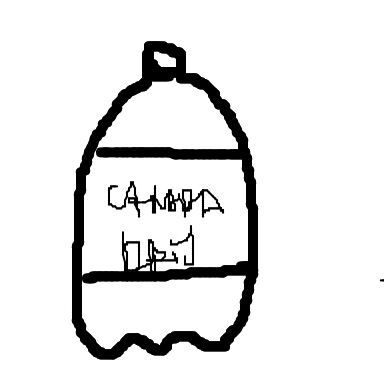 CANADA
DRY